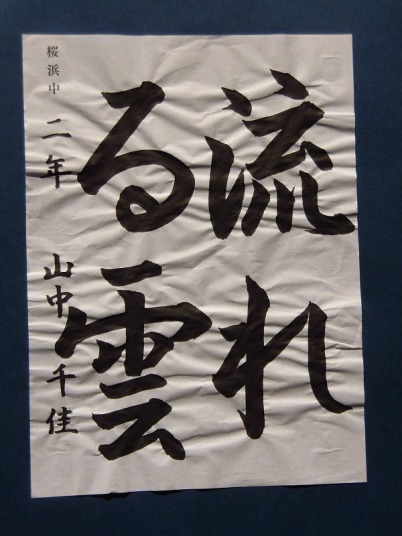 流れ
る雲
桜浜中 二年 山中千佳